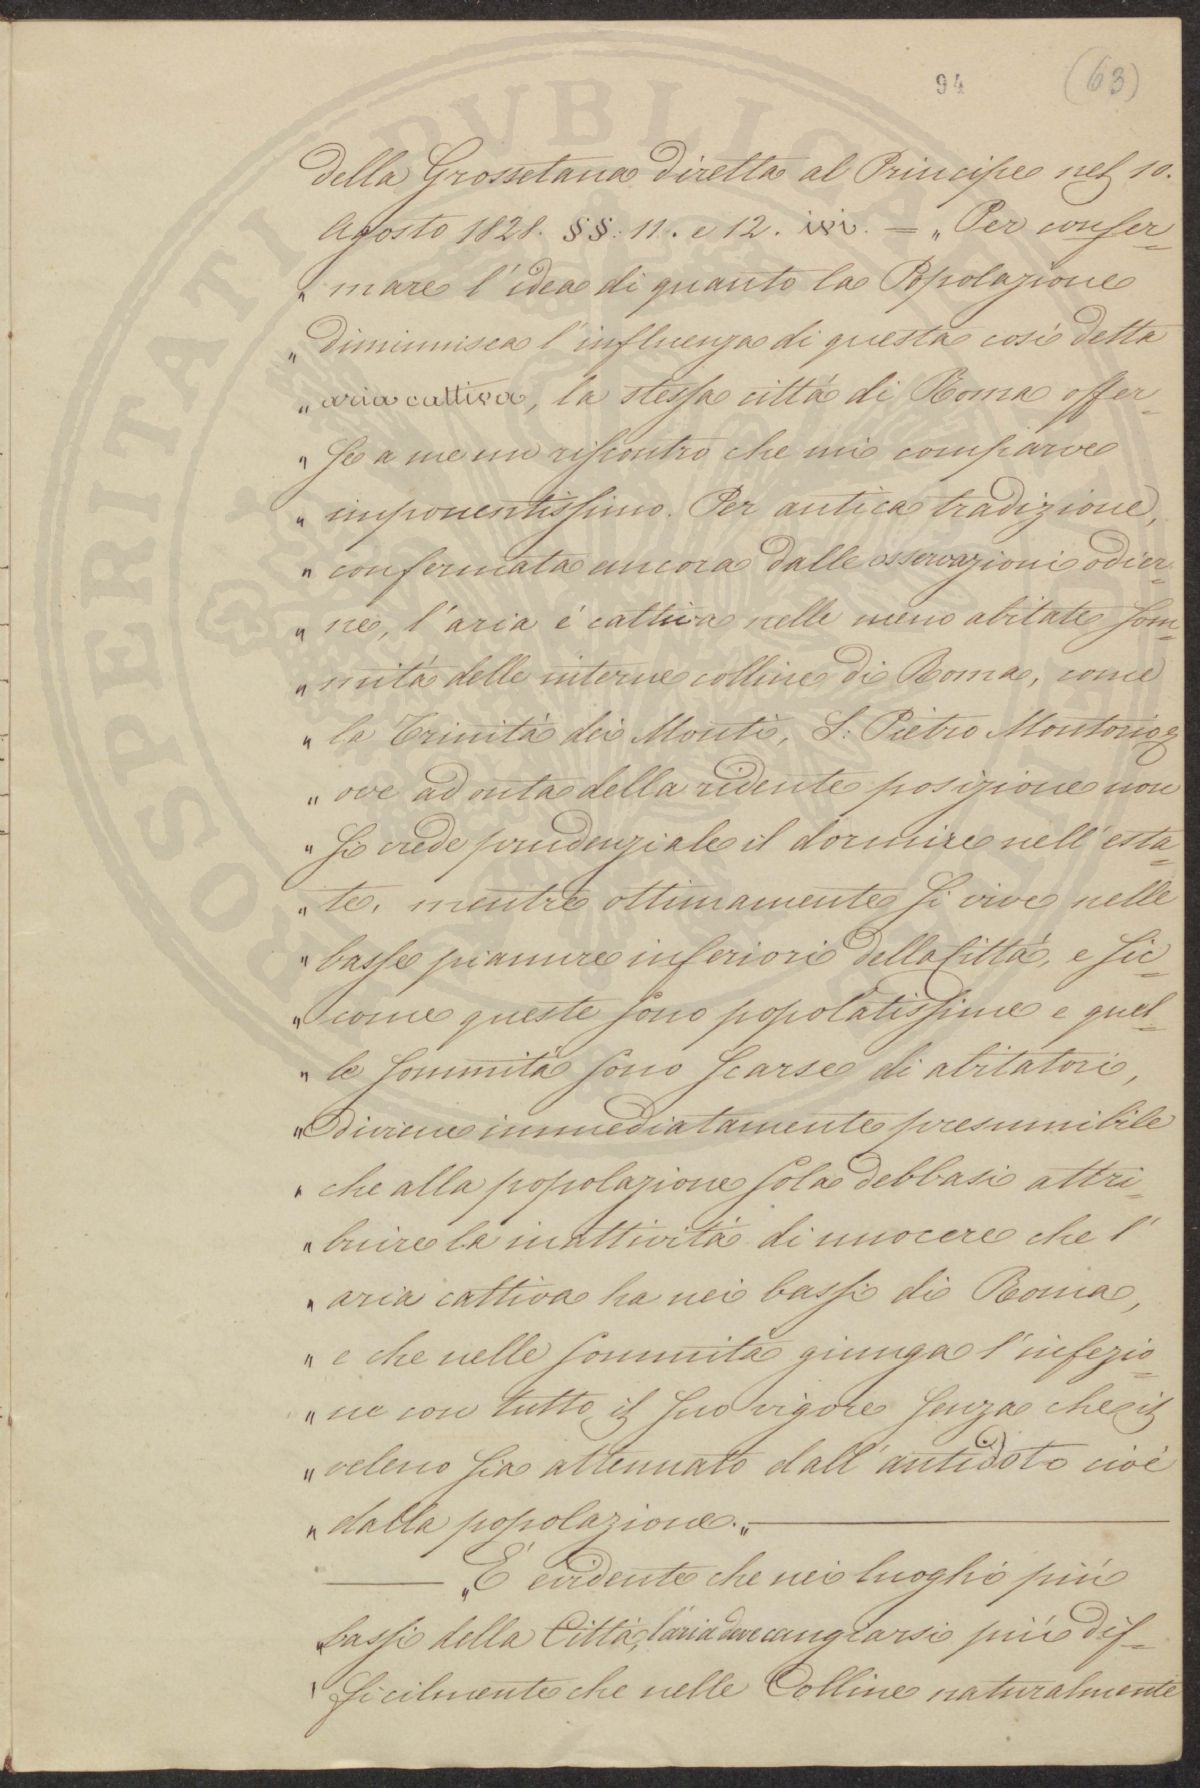 94 (63)
della Grossetana diretta al Principe nel 10.
Agosto 1828. §§. 11. e 12. ivi. = „ Per confer=
„ mare l'idea di quanto la Popolazione
„ diminuisca l'influenza di questa così detta
„ aria cattiva, la stessa città di Roma offer=
„ se a me un riscontro che mi comparve
„ imponentissimo. Per antica tradizione,
„ confermata ancora dalle osservazioni odier=
„ ne, l'aria é cattiva nelle meno abitate som=
„ mità delle interne colline di Roma, come
„ la Trinità dei Monti, S: Pietro Montorio &
„ ove ad onta della ridente posizione non
„ si crede prudenziale il dormire nell'esta=
„ te, mentre ottimamente si vive nelle
„ basse pianure inferiori della Città, e sic=
„ come queste sono popolatissime e quel=
„ le sommità sono scarse di abitatori,
„ diviene immediatamente presumibile
„ che alla popolazione sola debbasi attri=
„ buire la inattività di nuocere che l'
„ aria cattiva ha nei bassi di Roma,
„ e che nelle sommità giunga l'infezio=
„ ne con tutto il suo vigore senza che il
„ veleno sia attenuato dall'antidoto cioè
„ dalla popolazione. „
„ É evidente che nei luoghi più
„ bassi della Città, l'aria deve cangiarsi più dif=
„ ficilmente che nelle Colline naturalmente
PROSPERITATI PUBLICAE